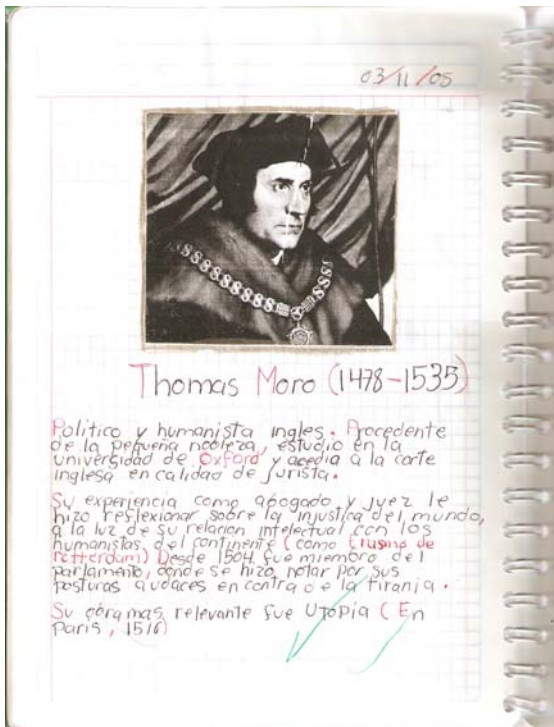 03/11/05
Thomas Moro (1478-1535)
Politico y humanista ingles. Procedente
de la pequeña nobleza, estudio en la
universidad de Oxford y acedia a la corte
inglesa en calidad de jurista.
Su experiencia como abogado y juez le
hizo reslexionar sobre la injustica del mundo,
a la luz de su relacion intelectual con los
humanistas del continente (como Erasmo de
rotterdam) Desde 1504 fue miembro del
parlamento, donde se hizo notar por sus
posturas audaces en contra de la tirania.
Su obra mas relevante fue Utopia (En
Paris, 1516)